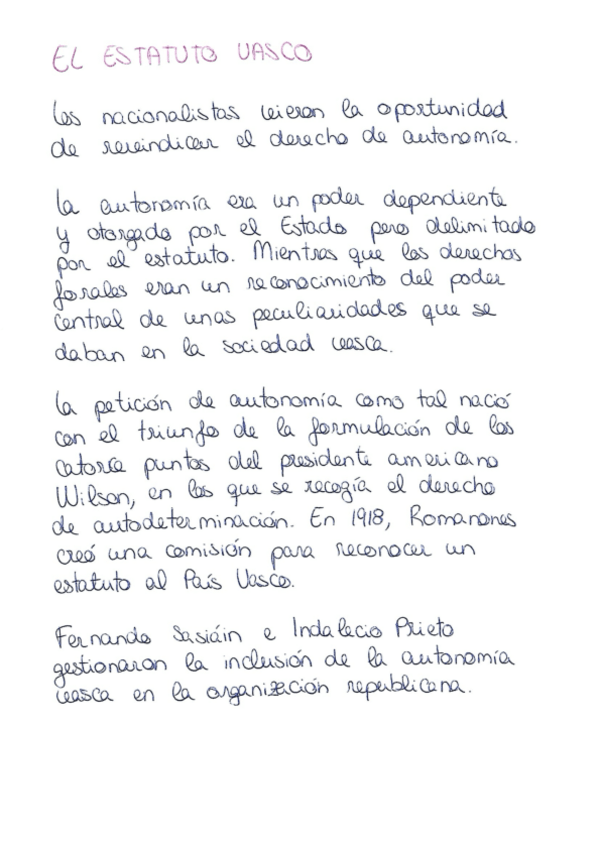 EL ESTATUTO VASCO
Los nacionalistas vieron la oportunidad
de reveindicar el derecho de autonomía.
La autonomía era un poder dependiente
y otorgado por el Estado pero delimitado
por el estatuto. Mientras que los derechos
forales eran un reconocimiento del poder
central de unas peculiaridades que se
daban en la sociedad vasca.
La petición de autonomía como tal nació
con el triunfo de la formulación de los
catorce puntos del presidente americano
Wilson, en los que se recogía el derecho
de autodeterminación. En 1918, Romanones
creó una comisión para reconocer un
estatuto al País Vasco.
Fernando Sasiáin e Indalecio Prieto
gestionaron la inclusión de la autonomía
vasca en la organización republicana.